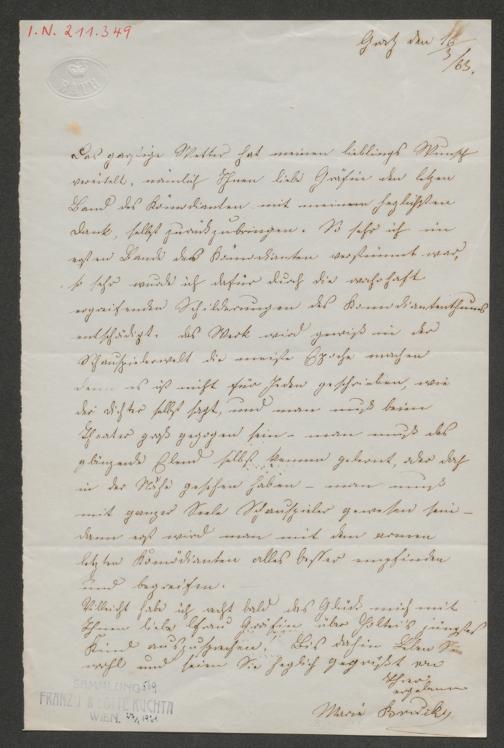 I.N. 211.349
Gratz den 16/3/63.
BATH
Das garstige Wetter hat meinen lieblings Wunsch
vereitelt, nämlich Ihnen liebe Gräfin den letzen
Band des Komödianten mit meinem herzlichsten
Dank, selbst zurükzubringen. So sehr ich im
ersten Bande des Komödianten verstimmt war,
so sehr wurde ich dafür durch die wahrhaft
ergreifenden Schilderungen des Komödiantenthums
entschädigt. Das Werk wird gewiß in der
Schauspielerwelt die meiste Epoche machen
denn es ist nicht für Jeden geschrieben, wie
der Dichter selbst sagt, und man muß beim
Theater groß gezogen sein – man muß das
glänzende Elend selbst kennen gelernt, oder doch
in der Nähe gesehen haben – man muß
mit ganzer Seele Schauspieler gewesen sein –
dann erst wird man mit dem armen
letzten Komödianten alles besser empfinden
und begreifen.
Vielleicht habe ich recht bald das Glück mich mit
Ihnen liebe Frau Gräfin über Holtei's jüngstes
Kind auszusprechen. Bis dahin leben Sie
wohl und seien Sie herzlich gegrüßt von
Ihrer
ergebenen
Marie
SAMMLUNG
FRANZ U. LOTTE KUCHTA
WIEN.